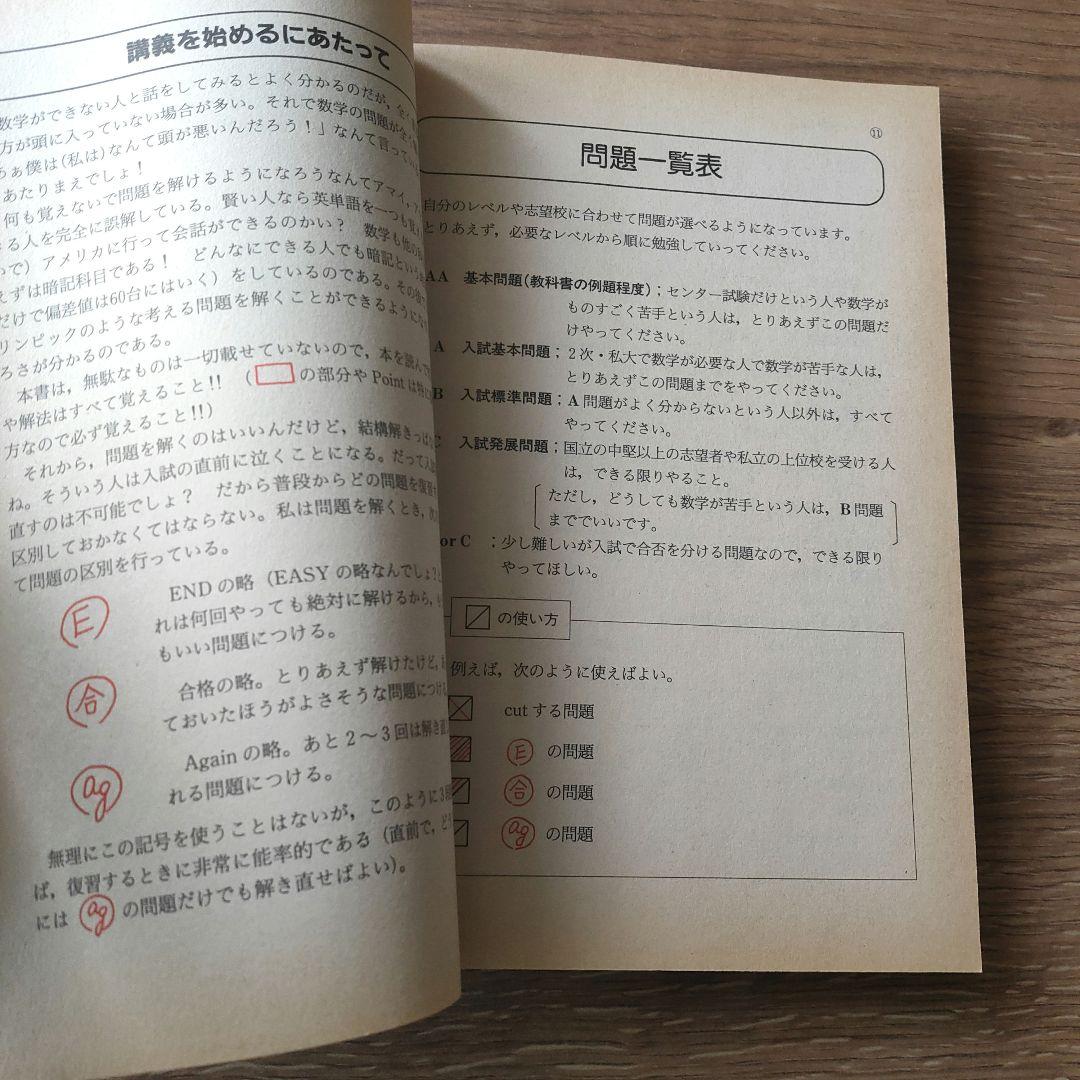 講義を始めるにあたって
数学ができない人と話をしてみるとよく分かるのだが,
方が頭に入っていない場合が多い。それで数学の問題が
あぁ僕は(私は)なんて頭が悪いんだろう！」なんて言って
あたりまえでしょ！
何も覚えないで問題を解けるようになろうなんてアマイ,
る人を完全に誤解している。賢い人なら英単語を一つも
いで）アメリカに行って会話ができるのかい？ 数学も他の
えずは暗記科目である！ どんなにできる人でも暗記という
だけで偏差値は60台にはいく）をしているのである。その後
リンピックのような考える問題を解くことができるように
ろさが分かるのである。
本書は，無駄なものは一切載せていないので，本を読んで
や解法はすべて覚えること!! （ の部分や Point は特に
方なので必ず覚えること!!）
それから，問題を解くのはいいんだけど，結構解きっぱ
ね。そういう人は入試の直前に泣くことになる。だって
直すのは不可能でしょ？ だから普段からどの問題を復習
区別しておかなくてはならない。私は問題を解くとき，
て問題の区別を行っている。
E ENDの略（EASYの略なんでしょ？
れは何回やっても絶対に解けるから，
もいい問題につける。
合 合格の略。とりあえず解けたけど，
ておいたほうがよさそうな問題につけ
ag Againの略。あと2～3回は解き直
れる問題につける。
無理にこの記号を使うことはないが，このように3
ば，復習するときに非常に能率的である（直前で，
には ag の問題だけでも解き直せばよい)。
⑪
問題一覧表
自分のレベルや志望校に合わせて問題が選べるようになっています。
とりあえず，必要なレベルから順に勉強していってください。
AA 基本問題(教科書の例題程度)；センター試験だけという人や数学が
ものすごく苦手という人は，とりあえずこの問題だ
けやってください。
A 入試基本問題；2次・私大で数学が必要な人で数学が苦手な人は，
とりあえずこの問題までをやってください。
B 入試標準問題；A問題がよく分からないという人以外は，すべて
やってください。
C 入試発展問題；国立の中堅以上の志望者や私立の上位校を受ける人
は，できる限りやること。
ただし，どうしても数学が苦手という人は，B問題
まででいいです。
or C ；少し難しいが入試で合否を分ける問題なので，できる限り
やってほしい。
の使い方
例えば，次のように使えばよい。
cutする問題
E の問題
合 の問題
ag の問題